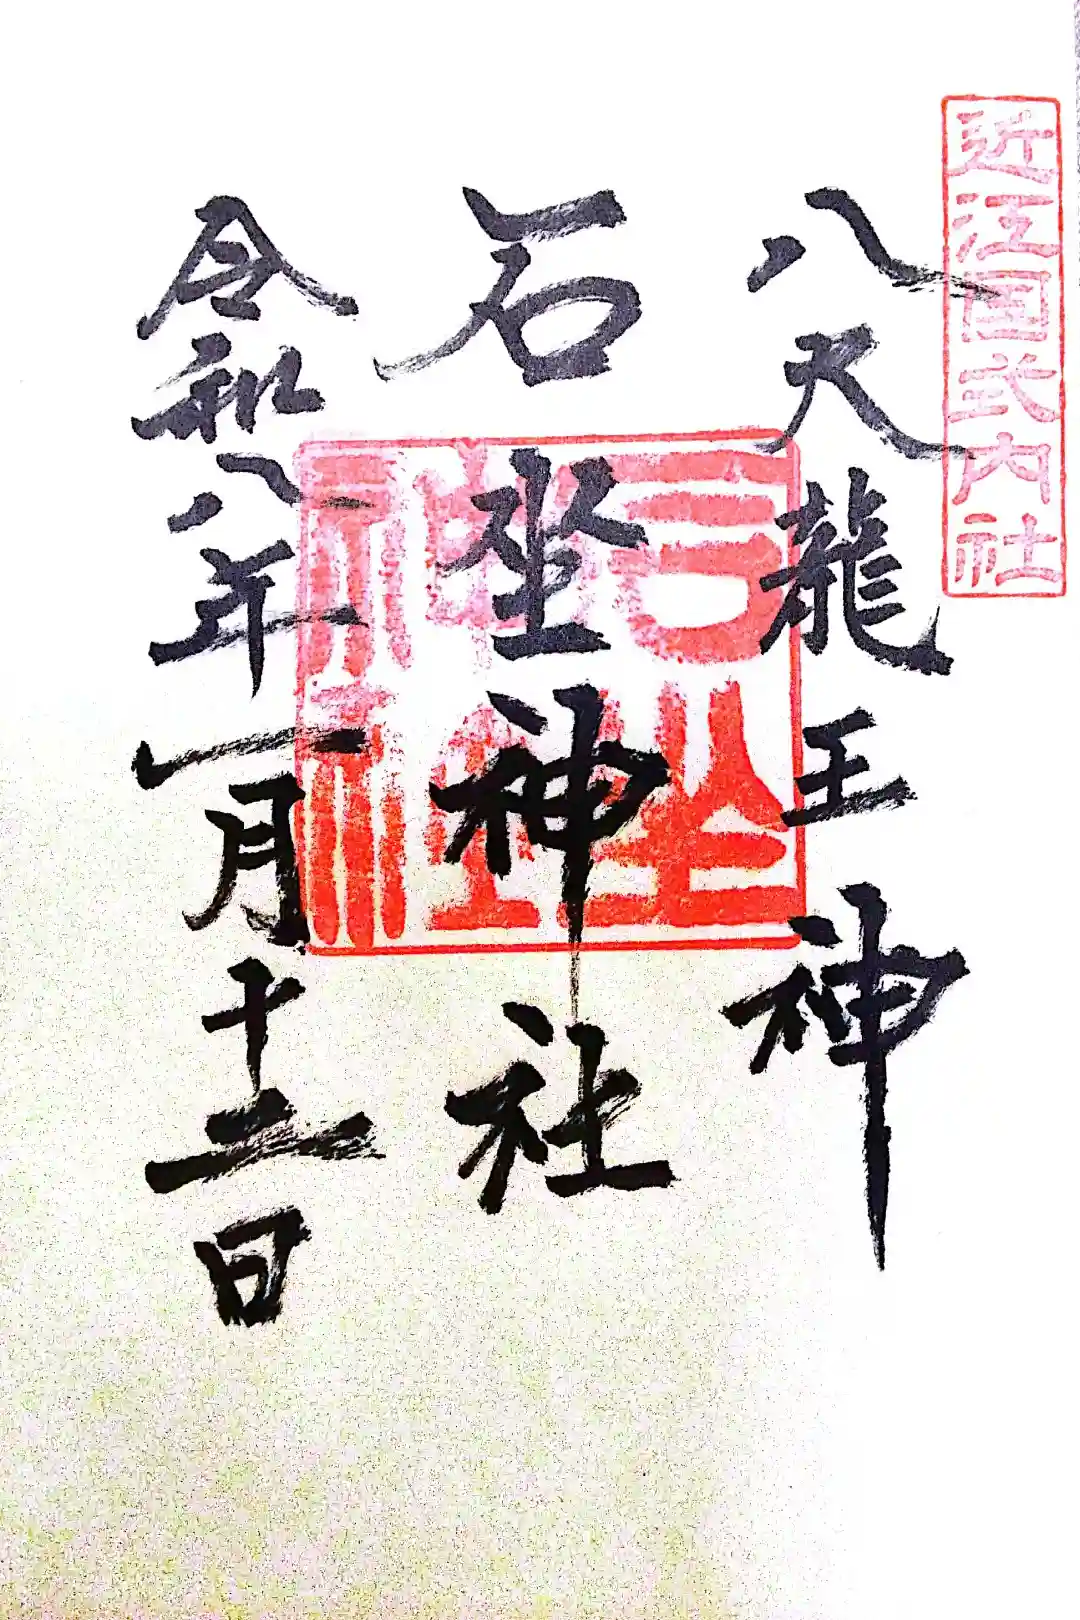 近江国式内社
八大龍王神
石坐神社
令和八年一月十二日
石坐神社